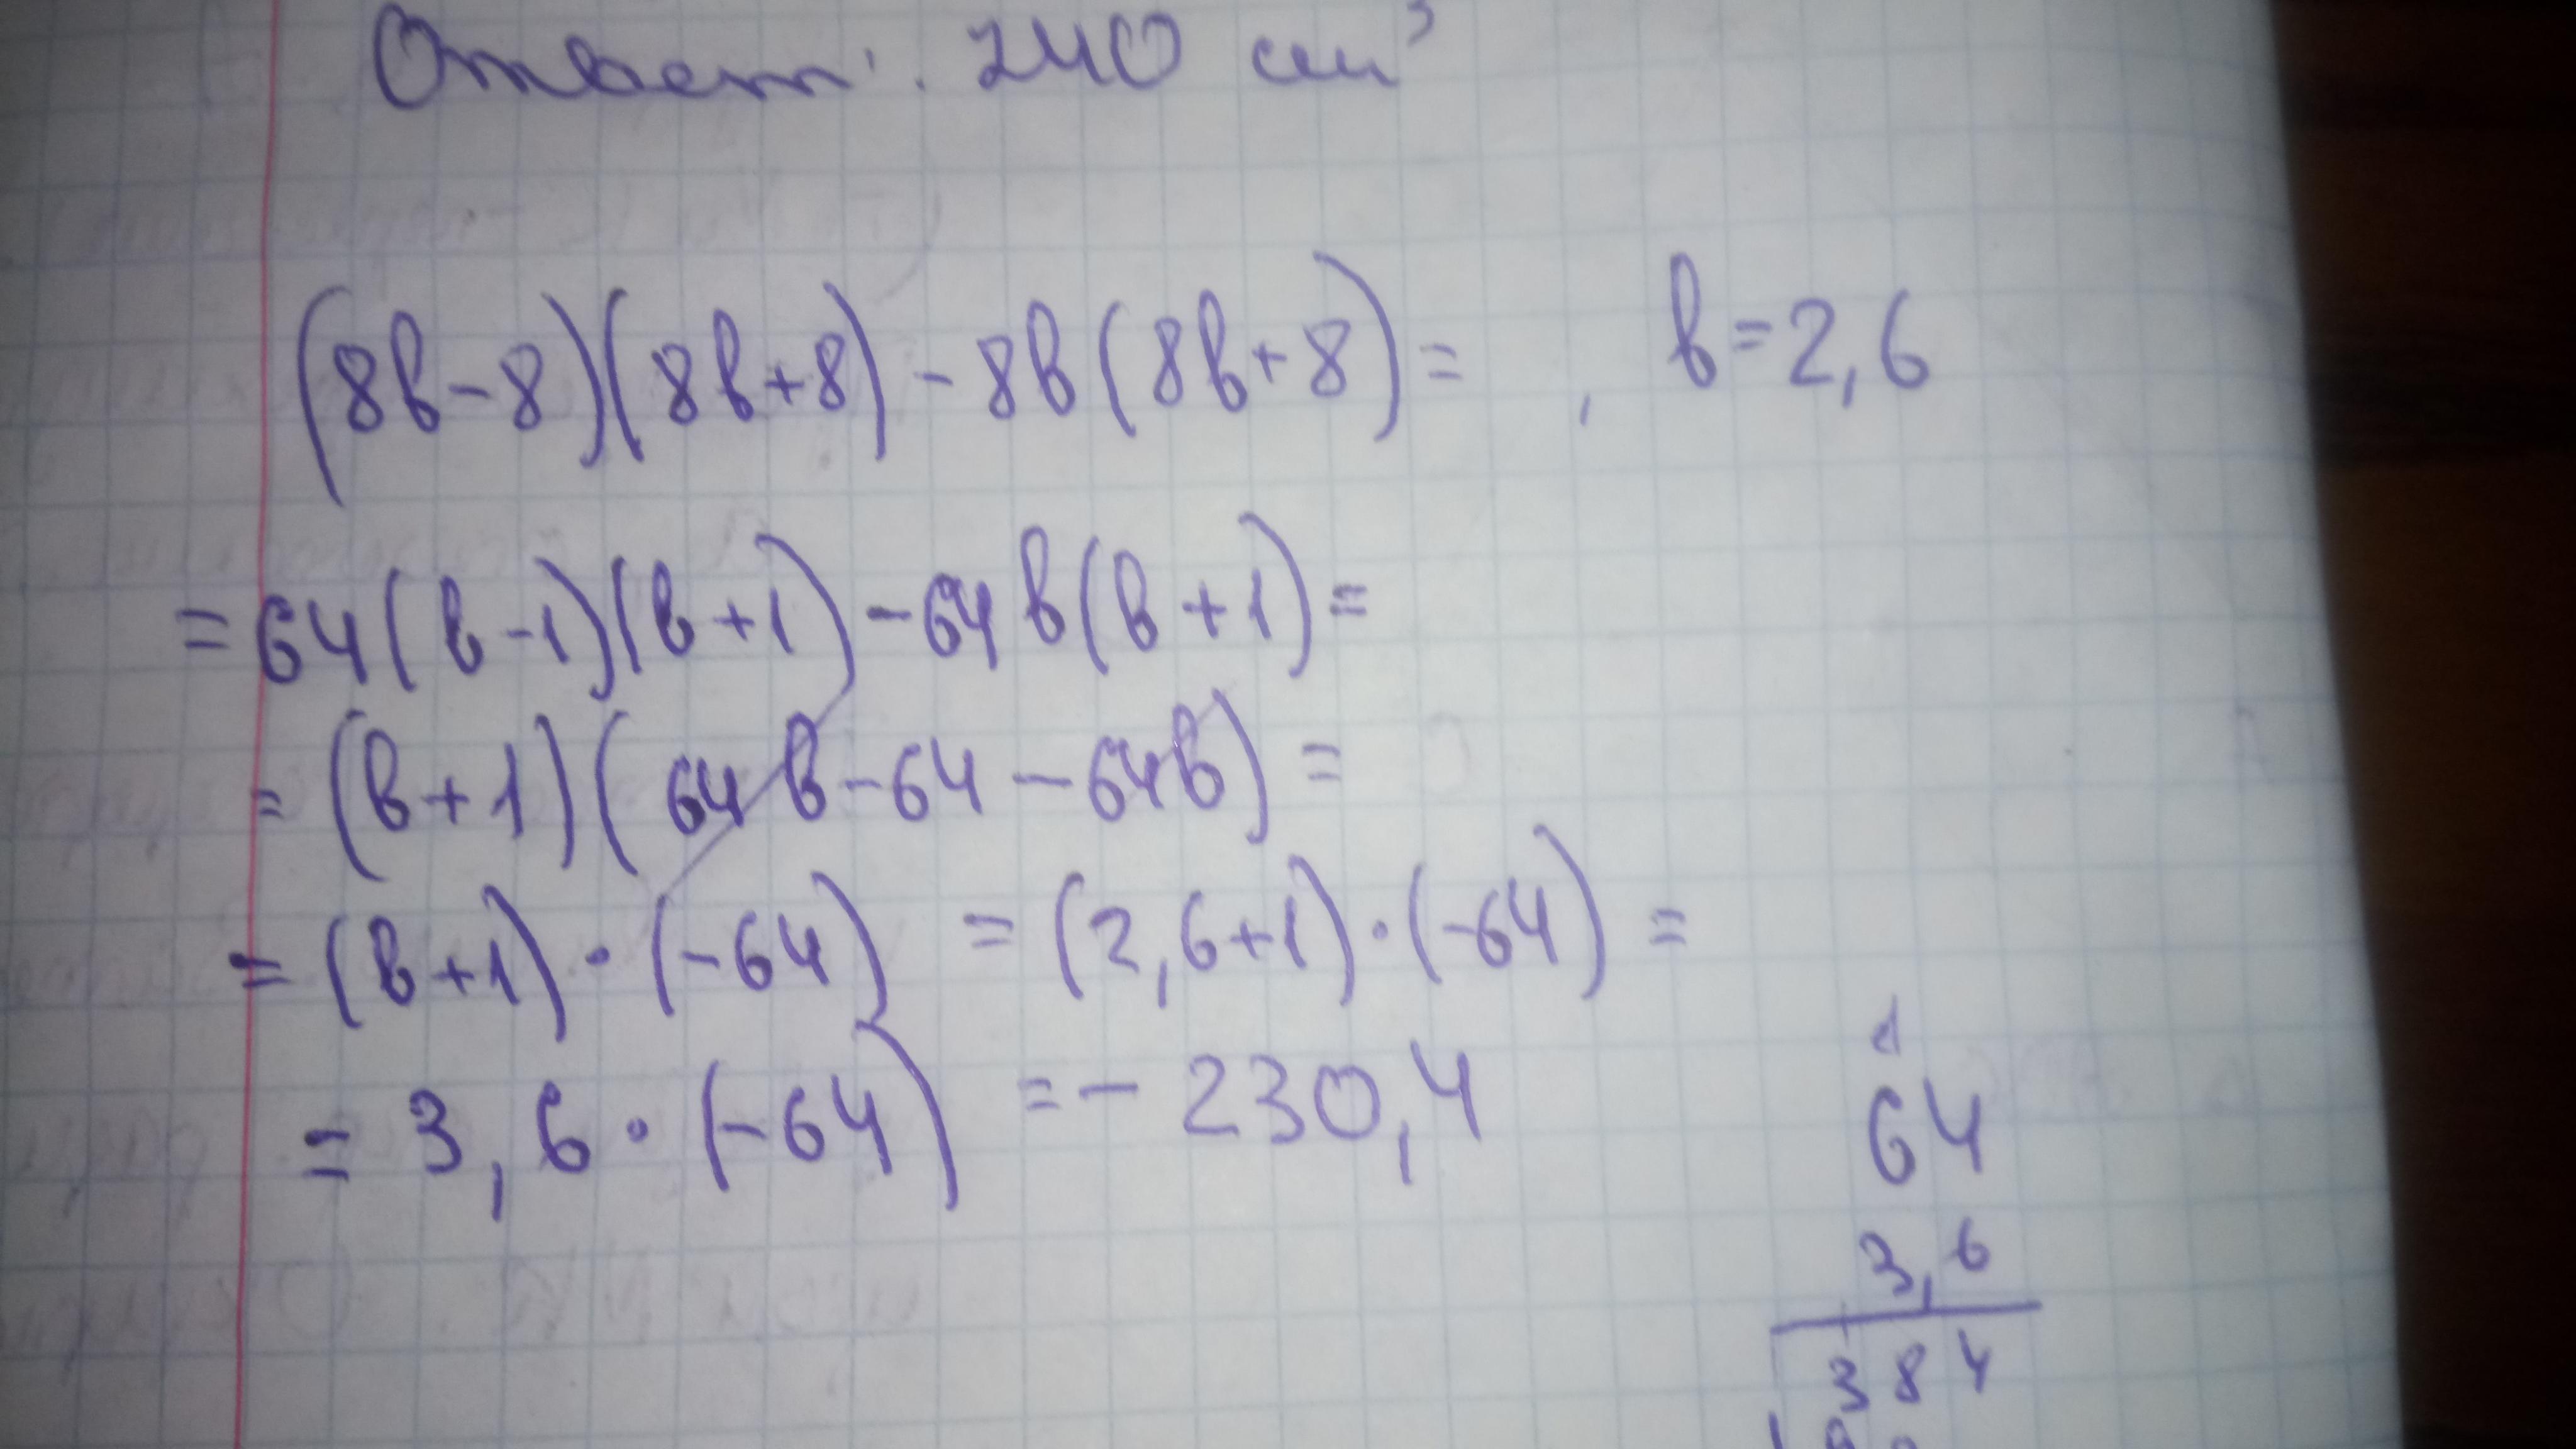 Ответ: 240 см³
(8в-8)(8в+8)-8в(8в+8)= , в=2,6
=64(в-1)(в+1)-64в(в+1)=
=(в+1)(64в-64-64в)=
=(в+1)·(-64) =(2,6+1)·(-64)=
=3,6·(-64) =-230,4
64
3,6
384